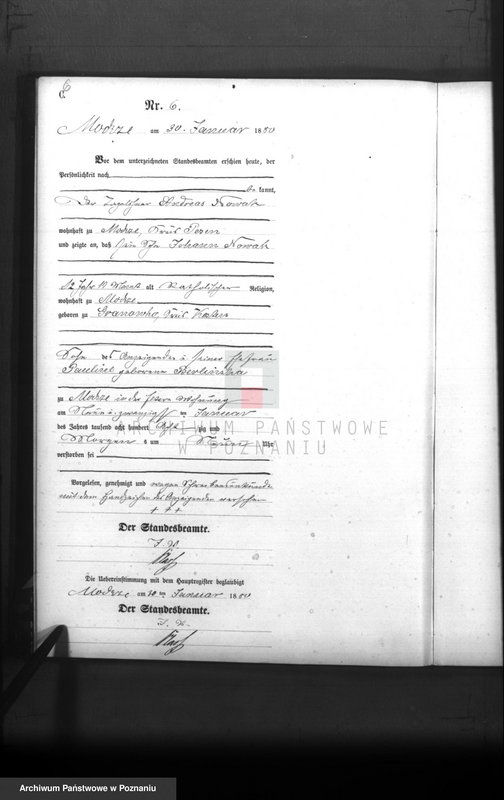 6
Nr. 6.
Modrze am 30. Januar 1880
Vor dem unterzeichneten Standesbeamten erschien heute, der
Persönlichkeit nach
be kannt,
Der Tagelöhner Andreas Nowak
wohnhaft zu Modrze, Kreis Posen
und zeigte an, daß sein Sohn Johann Nowak
12 Jahr 11 Monat alt katholischer Religion,
wohnhaft zu Modrze
geboren zu Granowko, Kreis Kosten
Sohn des Anzeigenden u seiner Ehefrau
geborene
zu Modrze in der Wohnung
am Neunundzwanzigsten Januar
des Jahres tausend acht hundert acht zig und
Morgens um Neun Uhr
verstorben sei
Vorgelesen, genehmigt und wegen Schreibensunkunde
mit dem Handzeichen des Anzeigenden versehen
+ + +
Der Standesbeamte.
I. V.
Die Uebereinstimmung mit dem Hauptregister beglaubigt
Modrze am 30 ten Januar 1880
Der Standesbeamte.
I. V.
ARCHIWUM PAŃSTWOWE
W POZNANIU
Archiwum Państwowe w Poznaniu